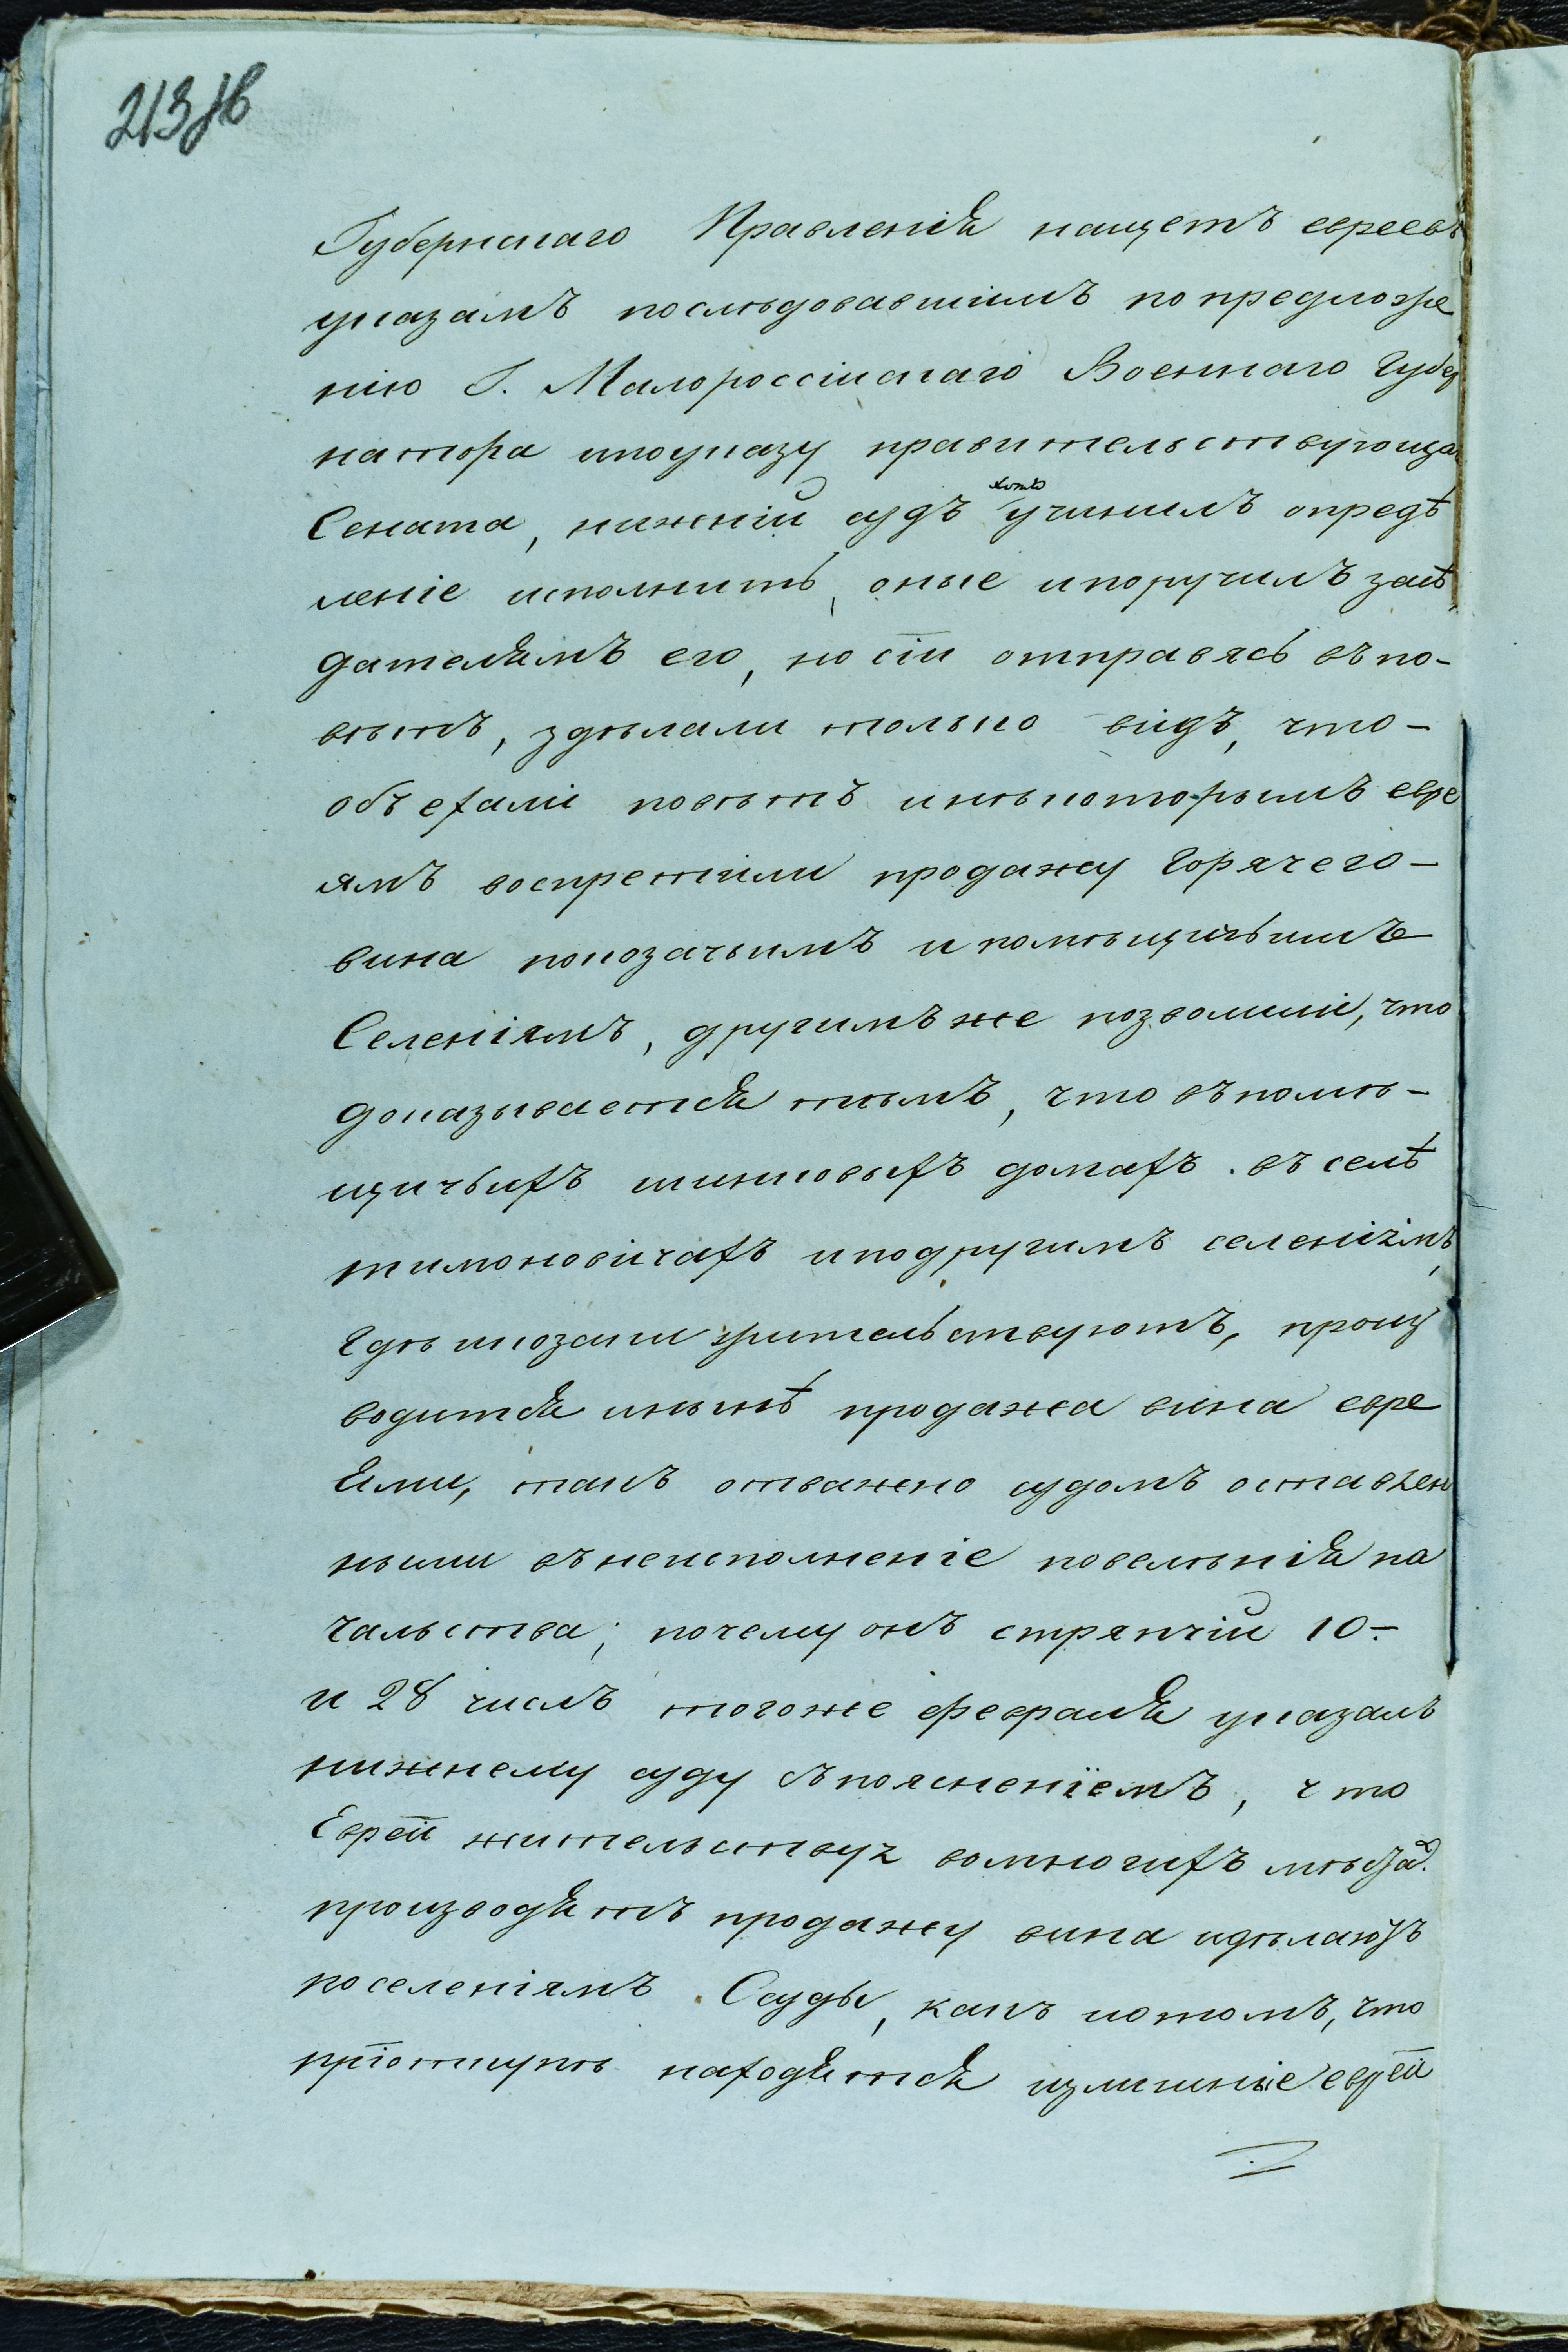 213 об
Губернскаго Правленія нащетъ евреевъ
указамъ последовавшимъ по предложе
нію Г. Малороссійскаго Военнаго Губер
натора ипоуказу правительствующа
Сената, нижній судъ хотя учинилъ опредѣ
леніе исполнить, оные ипоручилъ засѣ
дателямъ его, но сіи отправясь въ по-
вѣтъ, здѣлали только видъ, что-
объехали повѣтъ инѣкоторымъ евре
ямъ воспретили продажу Горячего-
вина покозачьимъ и помѣщичьимъ
Селеніямъ, другимъ же позволили, что
доказывается тѣмъ, что въ помѣ-
щичьихъ шинковыхъ домахъ въ селѣ
тимоновичахъ иподругимъ селеніямъ,
Где икозаки жительствуютъ, произ
водится инынѣ продажа вина евре
ями, такъ отважно судомъ оставлен
ными въ неисполненіе повелѣнія на
чальства; почему онъ стряпчій 10-
и 28 числъ тогоже февраля указалъ
нижнему суду съ поясненіемъ, что
Евреи жительствуя вомногихъ мѣстах.
производятъ продажу вина идѣлаютъ
поселеніямъ Ссуды, какъ ютомъ, что
находятся излишніе евреи